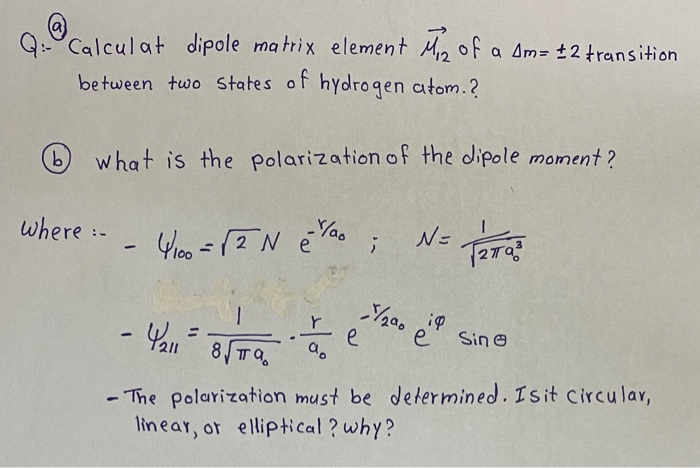 Q:- ⓐ Calculat dipole matrix element μ⃗₁₂ of a Δm= ±2 transition
between two states of hydrogen atom.?
ⓑ what is the polarization of the dipole moment?
where :- - ψ₁₀₀ = √2 N e^(-r/a₀) ; N= 1/√(2πa₀³)
- ψ₂₁₁ = 1/(8√(πa₀)) · r/a₀ e^(-r/2a₀) e^(iφ) sinθ
- The polarization must be determined. Is it circular,
linear, or elliptical? why?